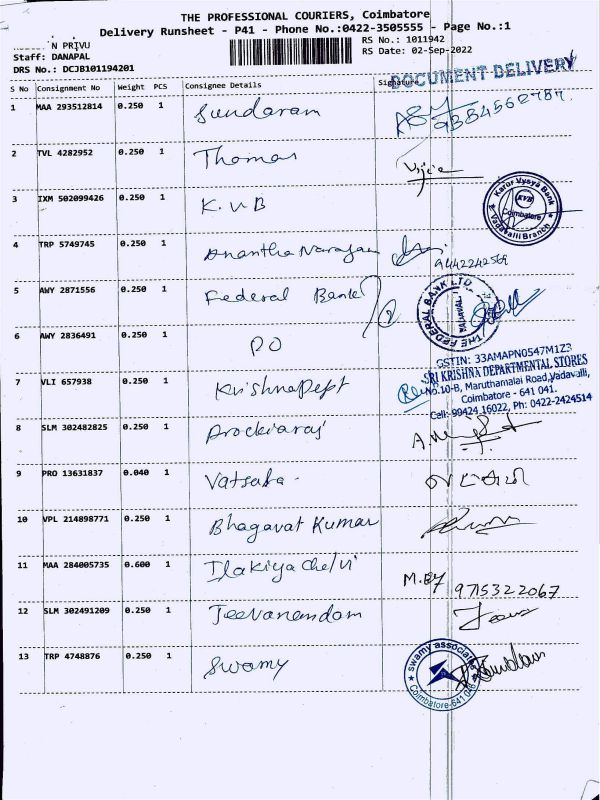 THE PROFESSIONAL COURIERS, Coimbatore
Delivery Runsheet - P41 - Phone No.:0422-3505555 - Page No.:1
N PRIVU
Staff: DANAPAL
DRS No.: DCJB101194201
RS No.: 1011942
RS Date: 02-Sep-2022
DOCUMENT DELIVERY
S No Consignment No Weight PCS Consignee Details Signature
1 MAA 293512814 0.250 1 Sundaram
2 TVL 4282952 0.250 1 Thomas Vijia
3 IXM 502099426 0.250 1 K.V.B
Karur Vysya Bank
KVB
Coimbatore
Vadavalli Branch
4 TRP 5749745 0.250 1 Anantha Narayan
9442242569
5 AWY 2871556 0.250 1 Federal Bank 2
THE FEDERAL BANK LTD.
6 AWY 2836491 0.250 1 PO
GSTIN: 33AMAPN0547M1Z3
SRI KRISHNA DEPARTMENTAL STORES
No.10-B, Maruthamalai Road, Vadavalli,
Coimbatore - 641 041.
Cell: 99424 16022, Ph: 0422-2424514
7 VLI 657938 0.250 1 Krishna Dept
8 SLM 302482825 0.250 1 Arockiaraj
9 PRO 13631837 0.040 1 Vatsala
10 VPL 214898771 0.250 1 Bhagavat Kumar
11 MAA 284005735 0.600 1 Ilakiya Chelvi 9715322067
12 SLM 302491209 0.250 1 Jeevanandam
13 TRP 4748876 0.250 1 Swamy
swamy associates
Coimbatore-641 046